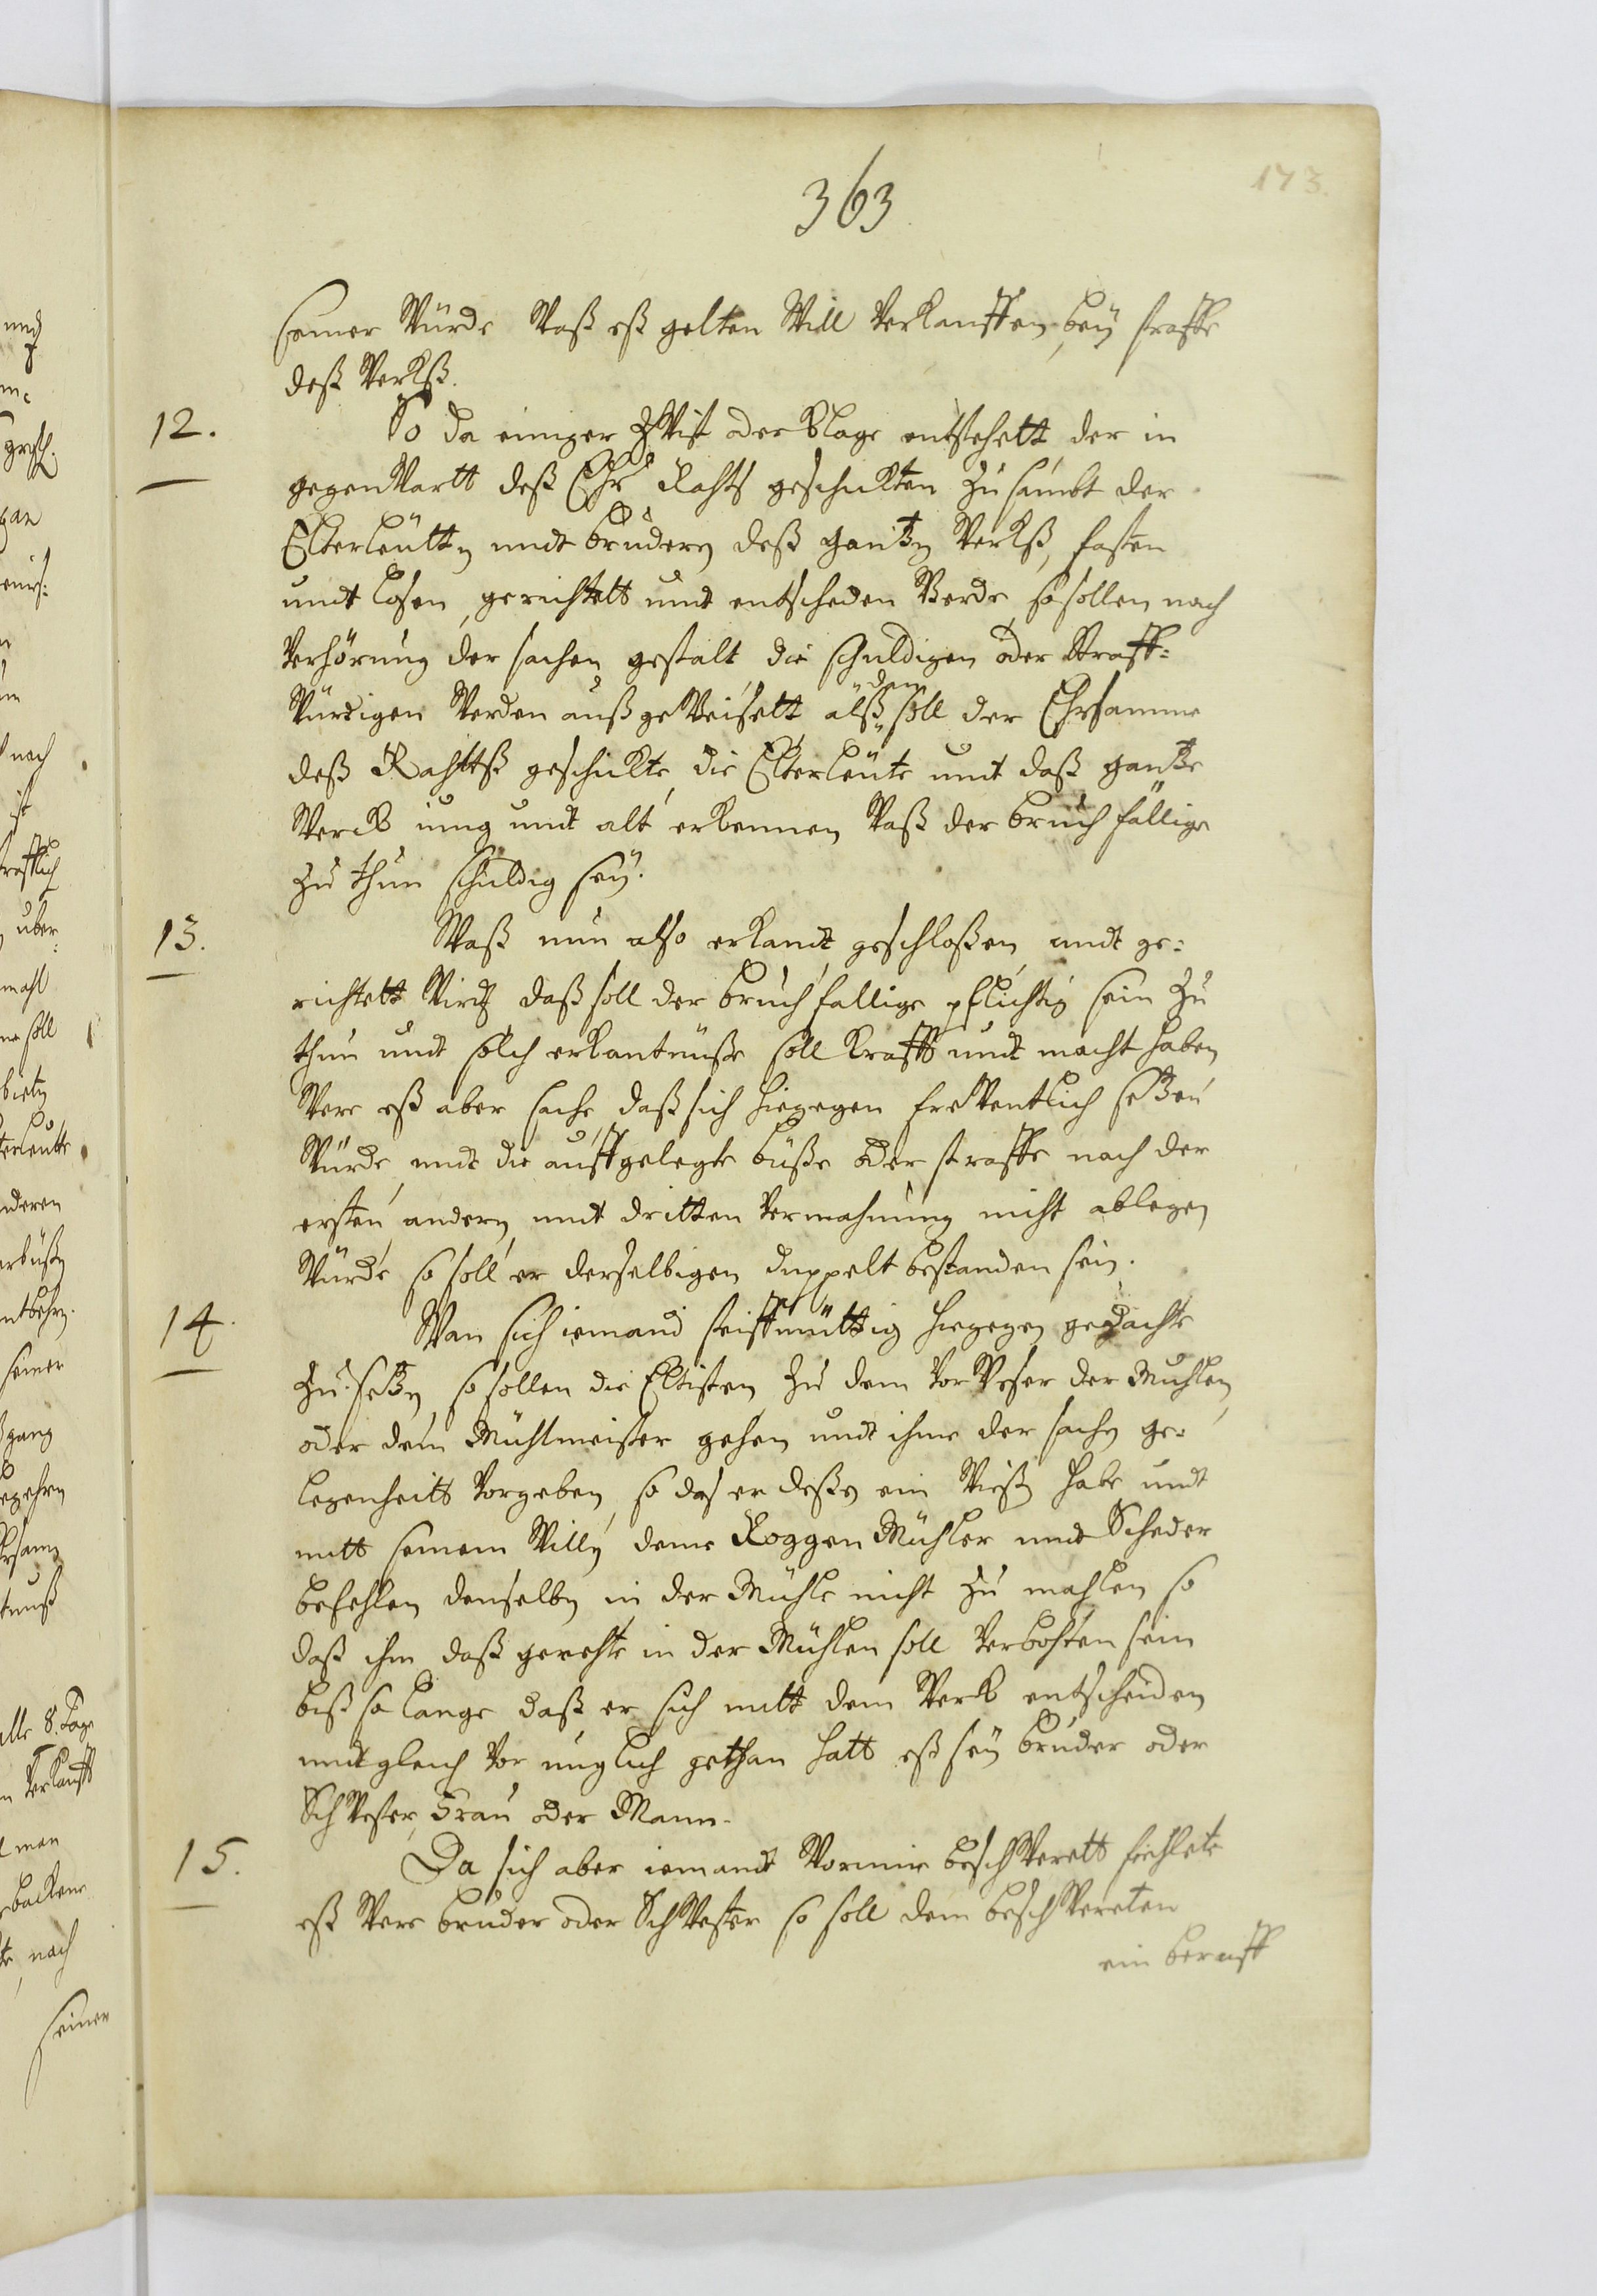 363
173.
seiner Würde Waß eß gelten Will Verkauffen, beÿ straffe
deß Werkß.
12. So da einiger Zwist oder Klage entstehett, der in
gegenWartt deß Ehr Rahts geschickten zu sambt der
Elterleutten undt brudern deß gantzen Werkß, fasten
undt losen, gerichtett undt entscheden Werde, so sollen nach
Verhörung der sachen gestalt, die schuldigen oder Straff=
Würdigen Werden außgeWeiselt, alß dan soll der Ehrsamme
deß Rahttß geschickte, die Elterleute undt daß gantze
Werck iung undt alt erkennen Waß der bruch fällige
zu thun schuldig seÿ.
13. Waß nun also erkandt, geschloßen, undt ge=
richtett Wirdt daß soll der bruchfallige pflichtig sein zu
thun undt solch erkantnuße soll krafft undt macht haben
Were eß aber sache daß sich hiegegen freWentlich setzen
Würde, undt die auffgelegte büße oder straffe nach der
ersten, andern, undt dritten Vermahnung nicht ablegen
Würde so soll er derselbigen duppelt bestanden sein.
14. Wan sich iemand steiffmüttig hiegegen gedachte
zu setzen, so sollen die Eltisten zu dem VorWeser der Muhlen,
oder dem Mühlmeister gehen undt ihme der sachen ge=
legenheitt Vorgeben, so das er deßen ein Wieß habe undt
mitt seinem Willen deme Roggen Mühler undt Scheder
befehlen denselben in der Mühle nicht zu mahlen so
daß ihm daß gerehte in der Mühlen soll Verbohten sein
biß so lange daß er sich mitt dem Werk entscheiden
undt gleich Vor unglich gethan hatt eß seÿ bruder oder
SchWester, Frau oder Mann.
15. Da sich aber iemandt Wormie beschWerett fiehlete
eß Were bruder oder SchWester so soll dem beschWereten
ein beruff